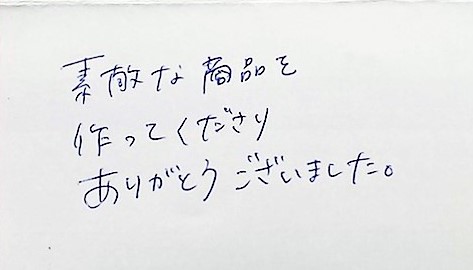 素敵な商品を
作ってくださり
ありがとうございました。